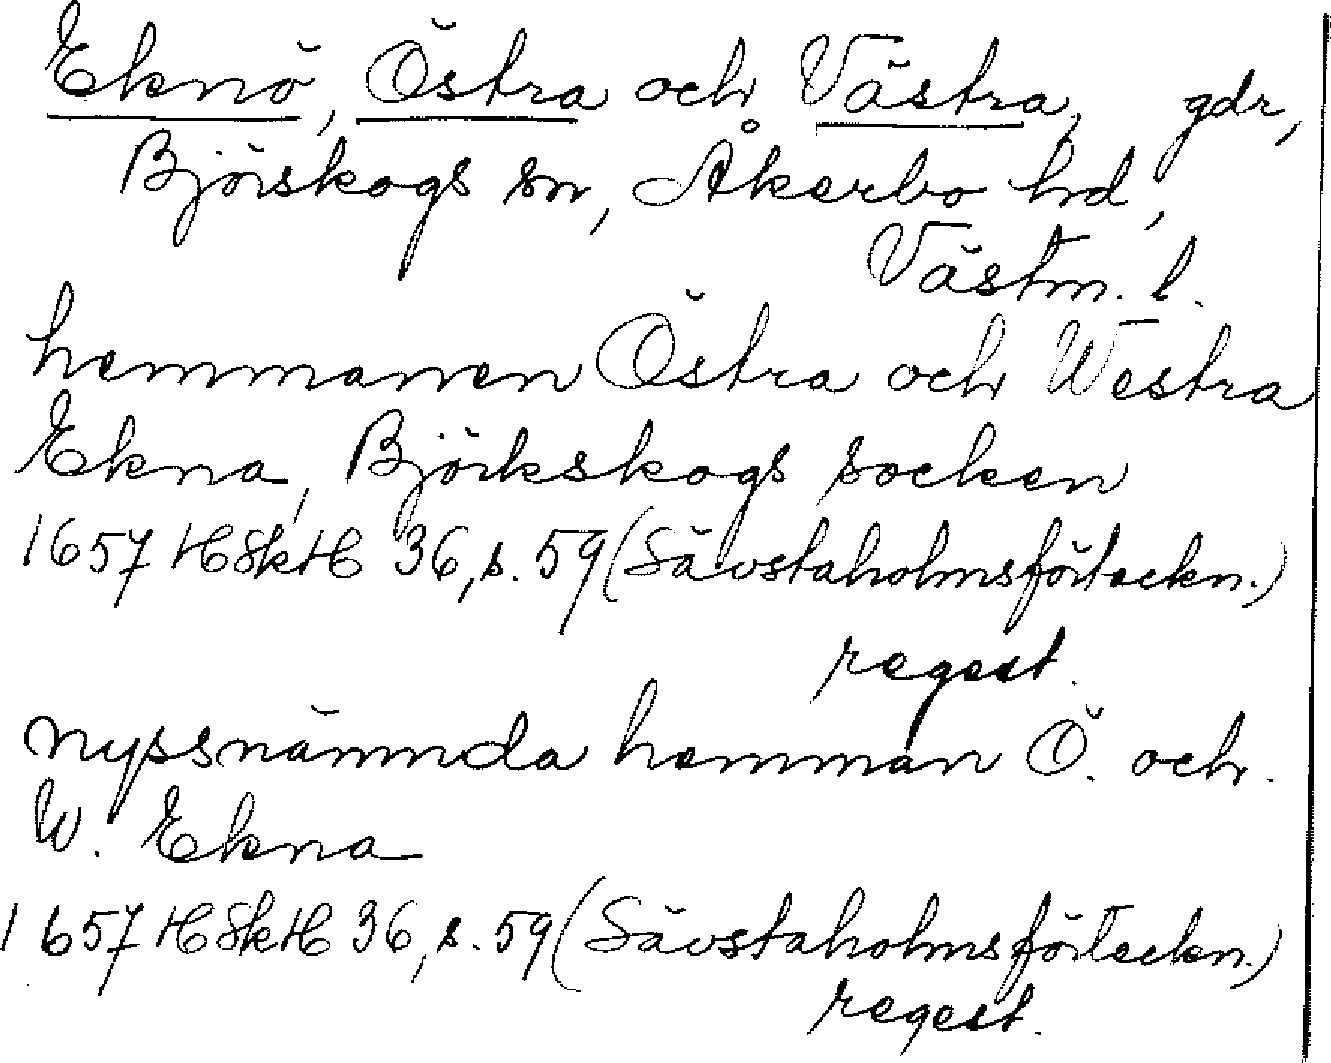 Eknö, Östra och Västra, gdr,
Björskogs sn, Åkerbo hd,
Västm. l.
hemmanen Östra och Westra
Ekna, Björkskogs socken
1657 HSkH 36, s. 59 (Sävstaholmsförteckn.)
regest.
nyssnämnda hemman Ö. och
W. Ekna
1657 HSkH 36, s. 59 (Sävstaholmsförteckn.)
regest.